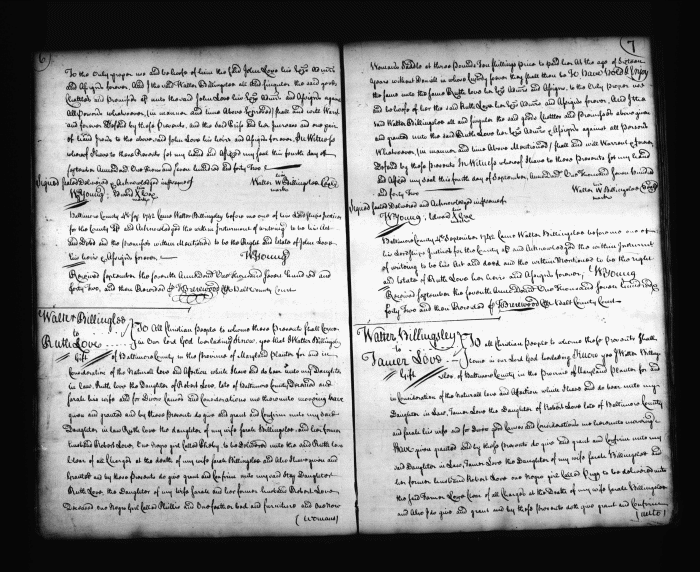 6
To the Only proper use and behoofe of him the said John Love his heirs Admrs
and Assigns forever. And I the said Walter Billingsley all and singular the said goods
Chattels and premises unto the said John Love his heirs Admrs and Assigns against
All persons whatsoever, (in manner and time Above Expressed) shall and will Warrt
and forever Defend by these presents, and the said
of hand to the above said John Love his heirs and Assigns forever. In Witness
whereof I have to these Presents set my hand and Affixed my seal this fourth day of
September Anno Domini One thousand seven hundred and forty two
Signed sealed Delivered & Acknowledged in presence of
Walter W Billingsley
his
mark
W Young: Edward
Baltimore County 1742 Came Walter Billingsley before me one of his Lordships Justices
for the County & Acknowledged the within Instrument of writing to be his Act
and Deed and the premises within Mentioned to be the Right and Estate of John Love
his heirs & Assigns forever
W Young
Received September the fourth Anno Domini One Thousand Seven hundred and
forty Two, and then Recorded
County Court
Walter Billingsley
to
Ruth Love
Gift
To All Christian People to whom these Presents shall Come
in Our Lord God Everlasting know yee that I Walter Billingsley
of Baltimore County in the Province of Maryland Planter for and in
Consideration of the Natural Love and Affection which I have and do bear unto my Daughter
in Law, Ruth Love the Daughter of Robert Love, late of Baltimore County Deceased and
Sarah his wife and for Divers Causes and Considerations me thereunto moving have
given and granted and by these presents do give and grant and Confirm unto my said
Daughter in Law Ruth Love the daughter of my wife Sarah Billingsley and her former
husband Robert Love, One Negro girl Called Pheby to be Delivered unto the said Ruth Love
Clear of all Charges at the death of my wife Sarah Billingsley and Also I have given and
granted and by these presents do give grant and Confirm unto my said Daughter
Ruth Love, the Daughter of my wife Sarah and her former husband Robert Love
Deceased one Negro girl Called Phillis and One feather bed and furniture and One
(Womans)
7
Womans Saddle at three pounds Ten shillings price to be paid her At the age of Sixteen
years without Demise in whose County soever they shall then be To Have Hold & Enjoy
the same unto the same Ruth Love her heirs Admrs and Assigns, to the Only Proper use
and behoofe of her the said Ruth Love her heirs Admrs and Assigns forever, And I the
said Walter Billingsley all and singular the said goods Chattels and premises above given
and granted unto the said Ruth Love her heirs Admrs & Assigns against all persons
Whatsoever, (in manner and time Above Mentioned) shall and will Warrant & forever
Defend by these presents In Witness whereof I have to these Presents set my hand
and Affixed my seal this fourth day of September, Anno Domini One thousand seven hundred
and forty two
Walter W Billingsley
his
mark
Signed sealed Delivered and Acknowledged in presence of
W Young: Edward
Baltimore County 4th September 1742 Came Walter Billingsley before me one of
his Lordships Justices for the County & and Acknowledged the within Instrument
of writing to be his Act and deed and the within Mentioned to be the right
and Estate of Ruth Love her heirs and Assigns forever, W Young
Received September the fourth Anno Domini One Thousand Seven hundred and
forty Two and then Recorded
County Court
Walter Billingsley
to
Tamer Love
Gift
To all Christian People to whom these Presents Shall
Come in our Lord God Everlasting Know yee I Walter Billings
ley of Baltimore County in the Province of Maryland Planter for and
in Consideration of the Natural love and Affection which I have and do bear unto my
Daughter in Law, Tamer Love the Daughter of Robert Love late of Baltimore County
and Sarah his wife and for Divers good Causes and Considerations me hereunto moving
Have given granted and by these presents do give and grant and Confirm unto my
said Daughter in Law, Tamer Love the Daughter of my wife Sarah Billingsley and
her former husband Robert Love one Negro girl Called to be delivered unto
the said Tamer Love Clear of all Charges at the Death of my wife Sarah Billingsley
and Also I do give and grant and by these presents doth give grant and Confirm
(unto)